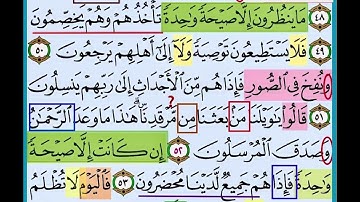 ٤٨ مَا يَنظُرُونَ إِلَّا صَيْحَةً وَٰحِدَةً تَأْخُذُهُمْ وَهُمْ يَخِصِّمُونَ
٤٩ فَلَا يَسْتَطِيعُونَ تَوْصِيَةً وَلَآ إِلَىٰٓ أَهْلِهِمْ يَرْجِعُونَ ٥٠
وَنُفِخَ فِى ٱلصُّورِ فَإِذَا هُم مِّنَ ٱلْأَجْدَاثِ إِلَىٰ رَبِّهِمْ يَنسِلُونَ
٥١ قَالُوا۟ يَٰوَيْلَنَا مَنۢ بَعَثَنَا مِن مَّرْقَدِنَا ۜ ؟ هَٰذَا مَا وَعَدَ ٱلرَّحْمَٰنُ
وَصَدَقَ ٱلْمُرْسَلُونَ ٥٢ إِن كَانَتْ إِلَّا صَيْحَةً
وَٰحِدَةً فَإِذَا هُمْ جَمِيعٌ لَّدَيْنَا مُحْضَرُونَ ٥٣ فَٱلْيَوْمَ لَا تُظْلَمُ